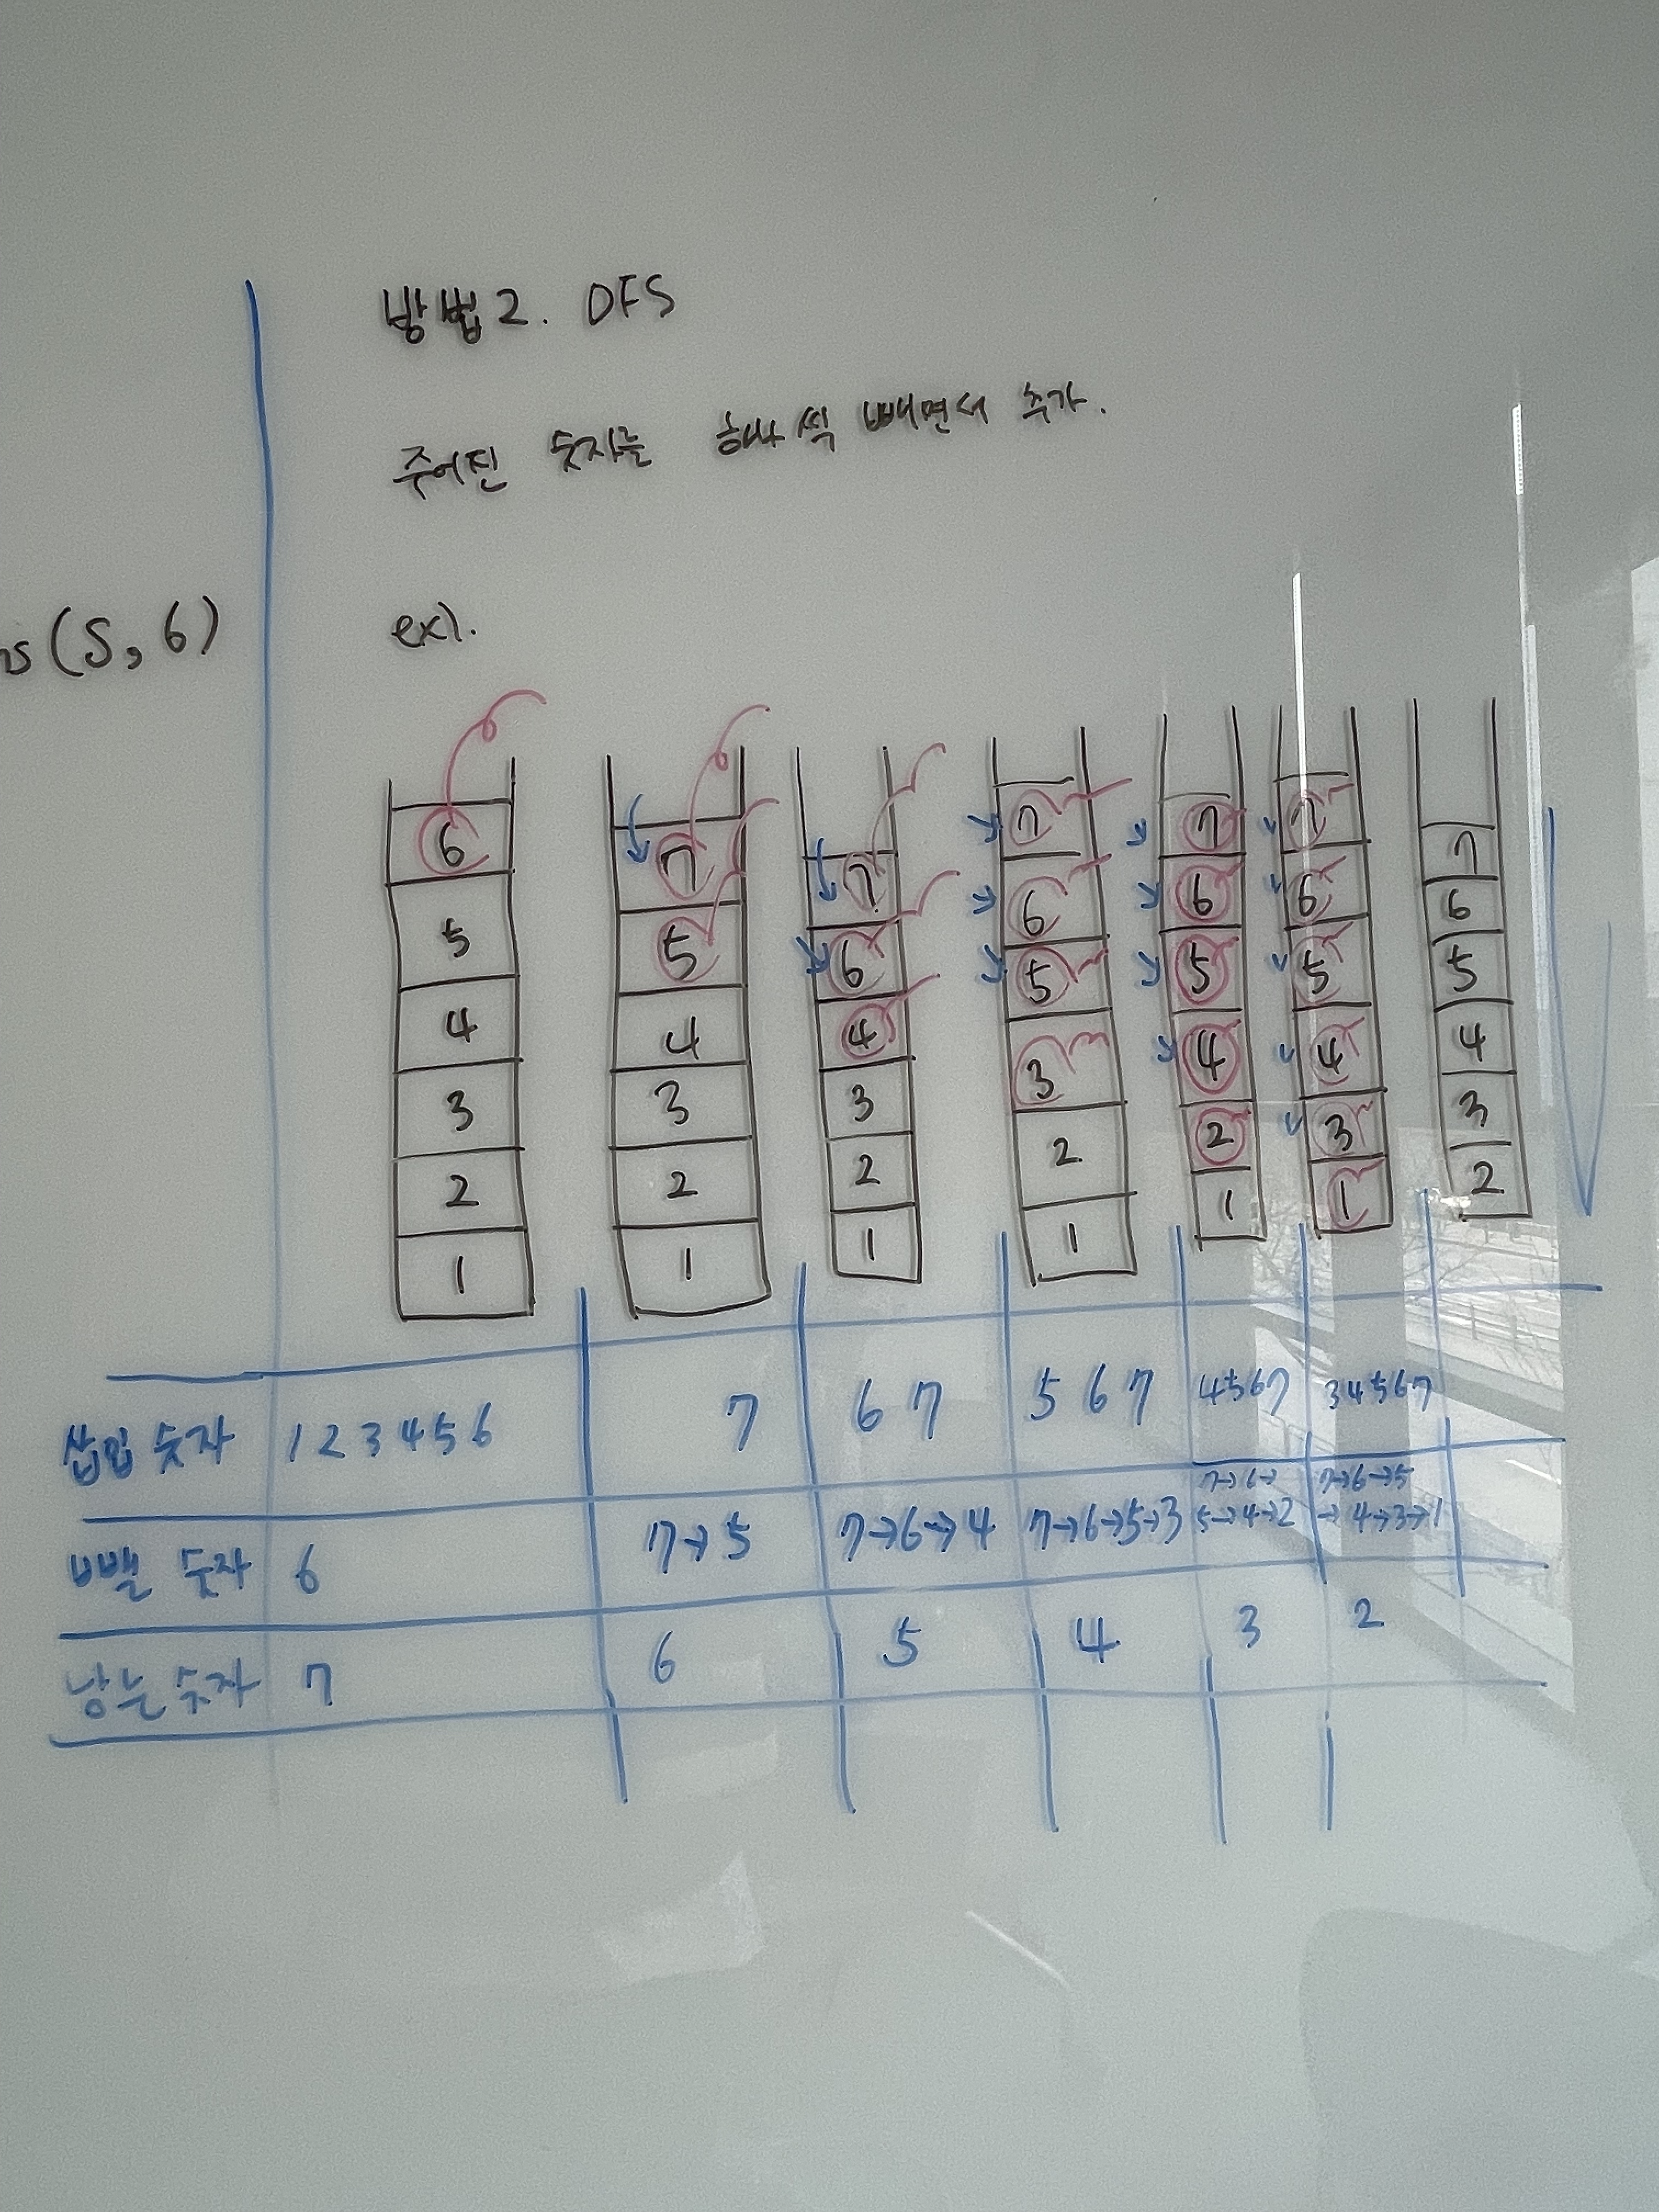 방법2. DFS
주어진 숫자를 하나씩 빼면서 추가.
(S, 6)
ex).
6 5 4 3 2 1
7 5 4 3 2 1
7 6 4 3 2 1
7 6 5 3 2 1
7 6 5 4 2 1
7 6 5 4 3 1
7 6 5 4 3 2
삽입 숫자 1 2 3 4 5 6 7 6 7 5 6 7 4 5 6 7 3 4 5 6 7
뺄 숫자 6 7→5 7→6→4 7→6→5→3 7→6→5→4→2 7→6→5→4→3→1
남는 숫자 7 6 5 4 3 2